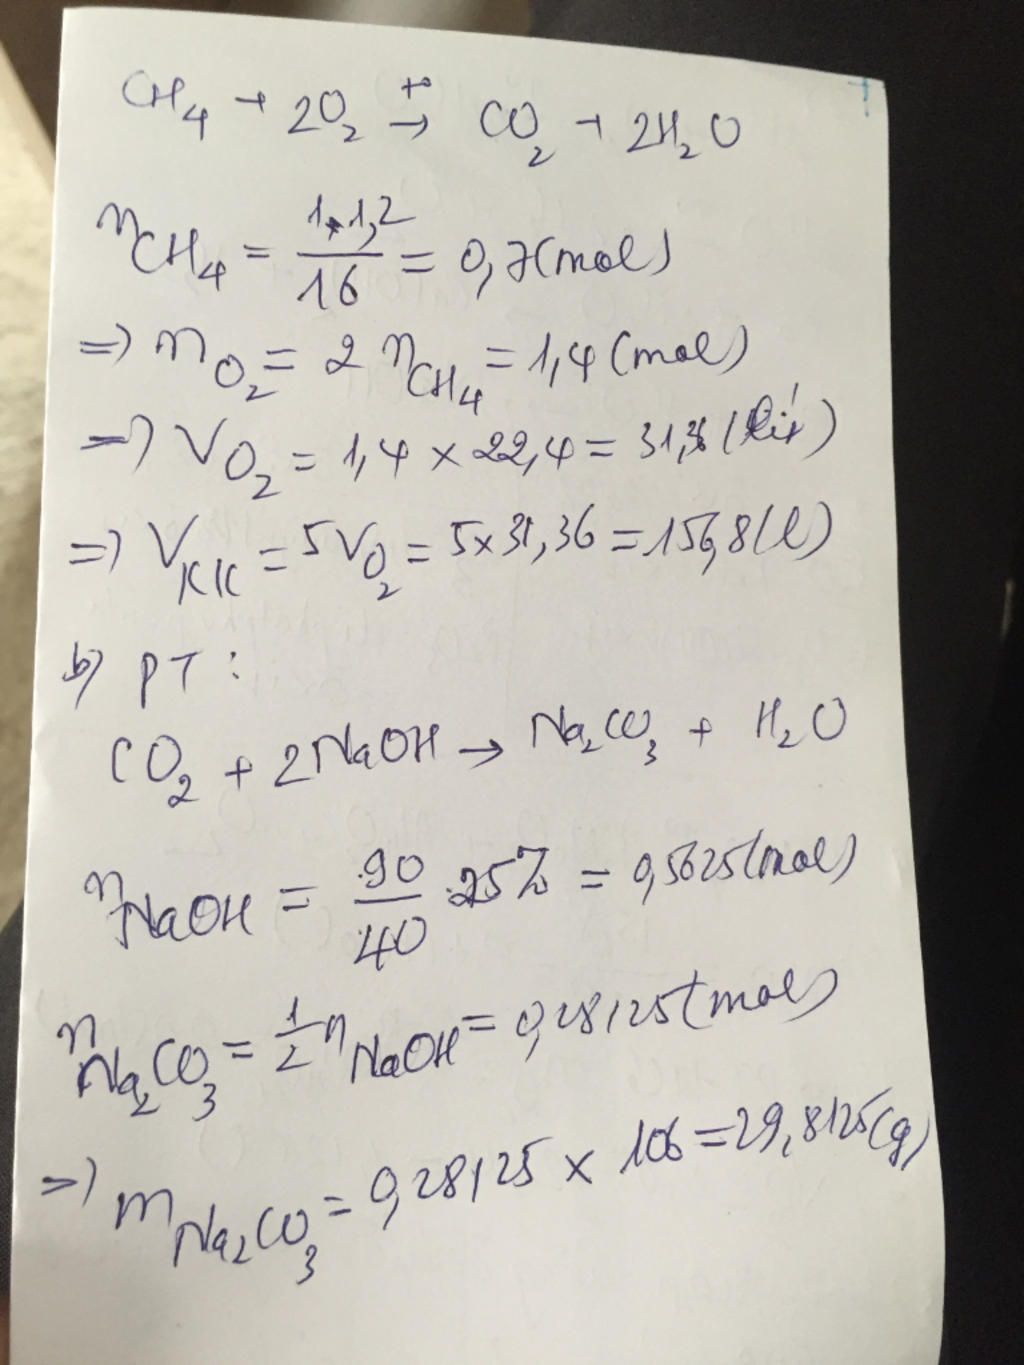 CH4 + 2O2 t° → CO2 + 2H2O
nCH4 = 11,2/16 = 0,7(mol)
=> nO2 = 2 nCH4 = 1,4 (mol)
=> VO2 = 1,4 x 22,4 = 31,36 (lít)
=> VKK = 5VO2 = 5x31,36 = 156,8(l)
b) PT :
CO2 + 2NaOH → Na2CO3 + H2O
nNaOH = 90/40 .25% = 0,5625(mol)
nNa2CO3 = 1/2 nNaOH = 0,28125(mol)
=> mNa2CO3 = 0,28125 x 106 = 29,8125(g)